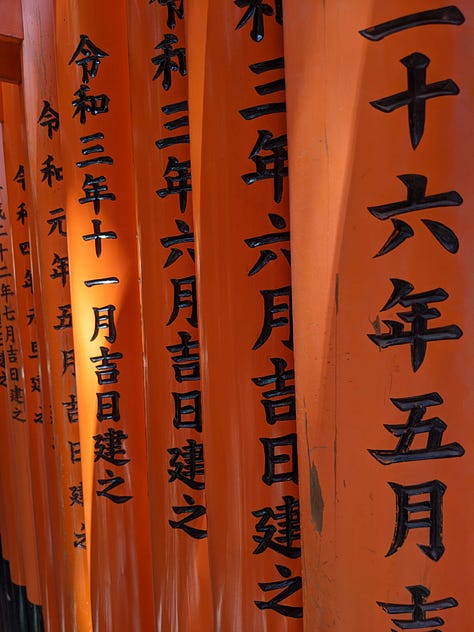 十六年五月吉
和三年六月吉日建之
令和三年六月吉日建之
令和三年十一月吉日建之
令和元年五月吉日建之
令和四年元旦建之
成二十二年七月吉日建之